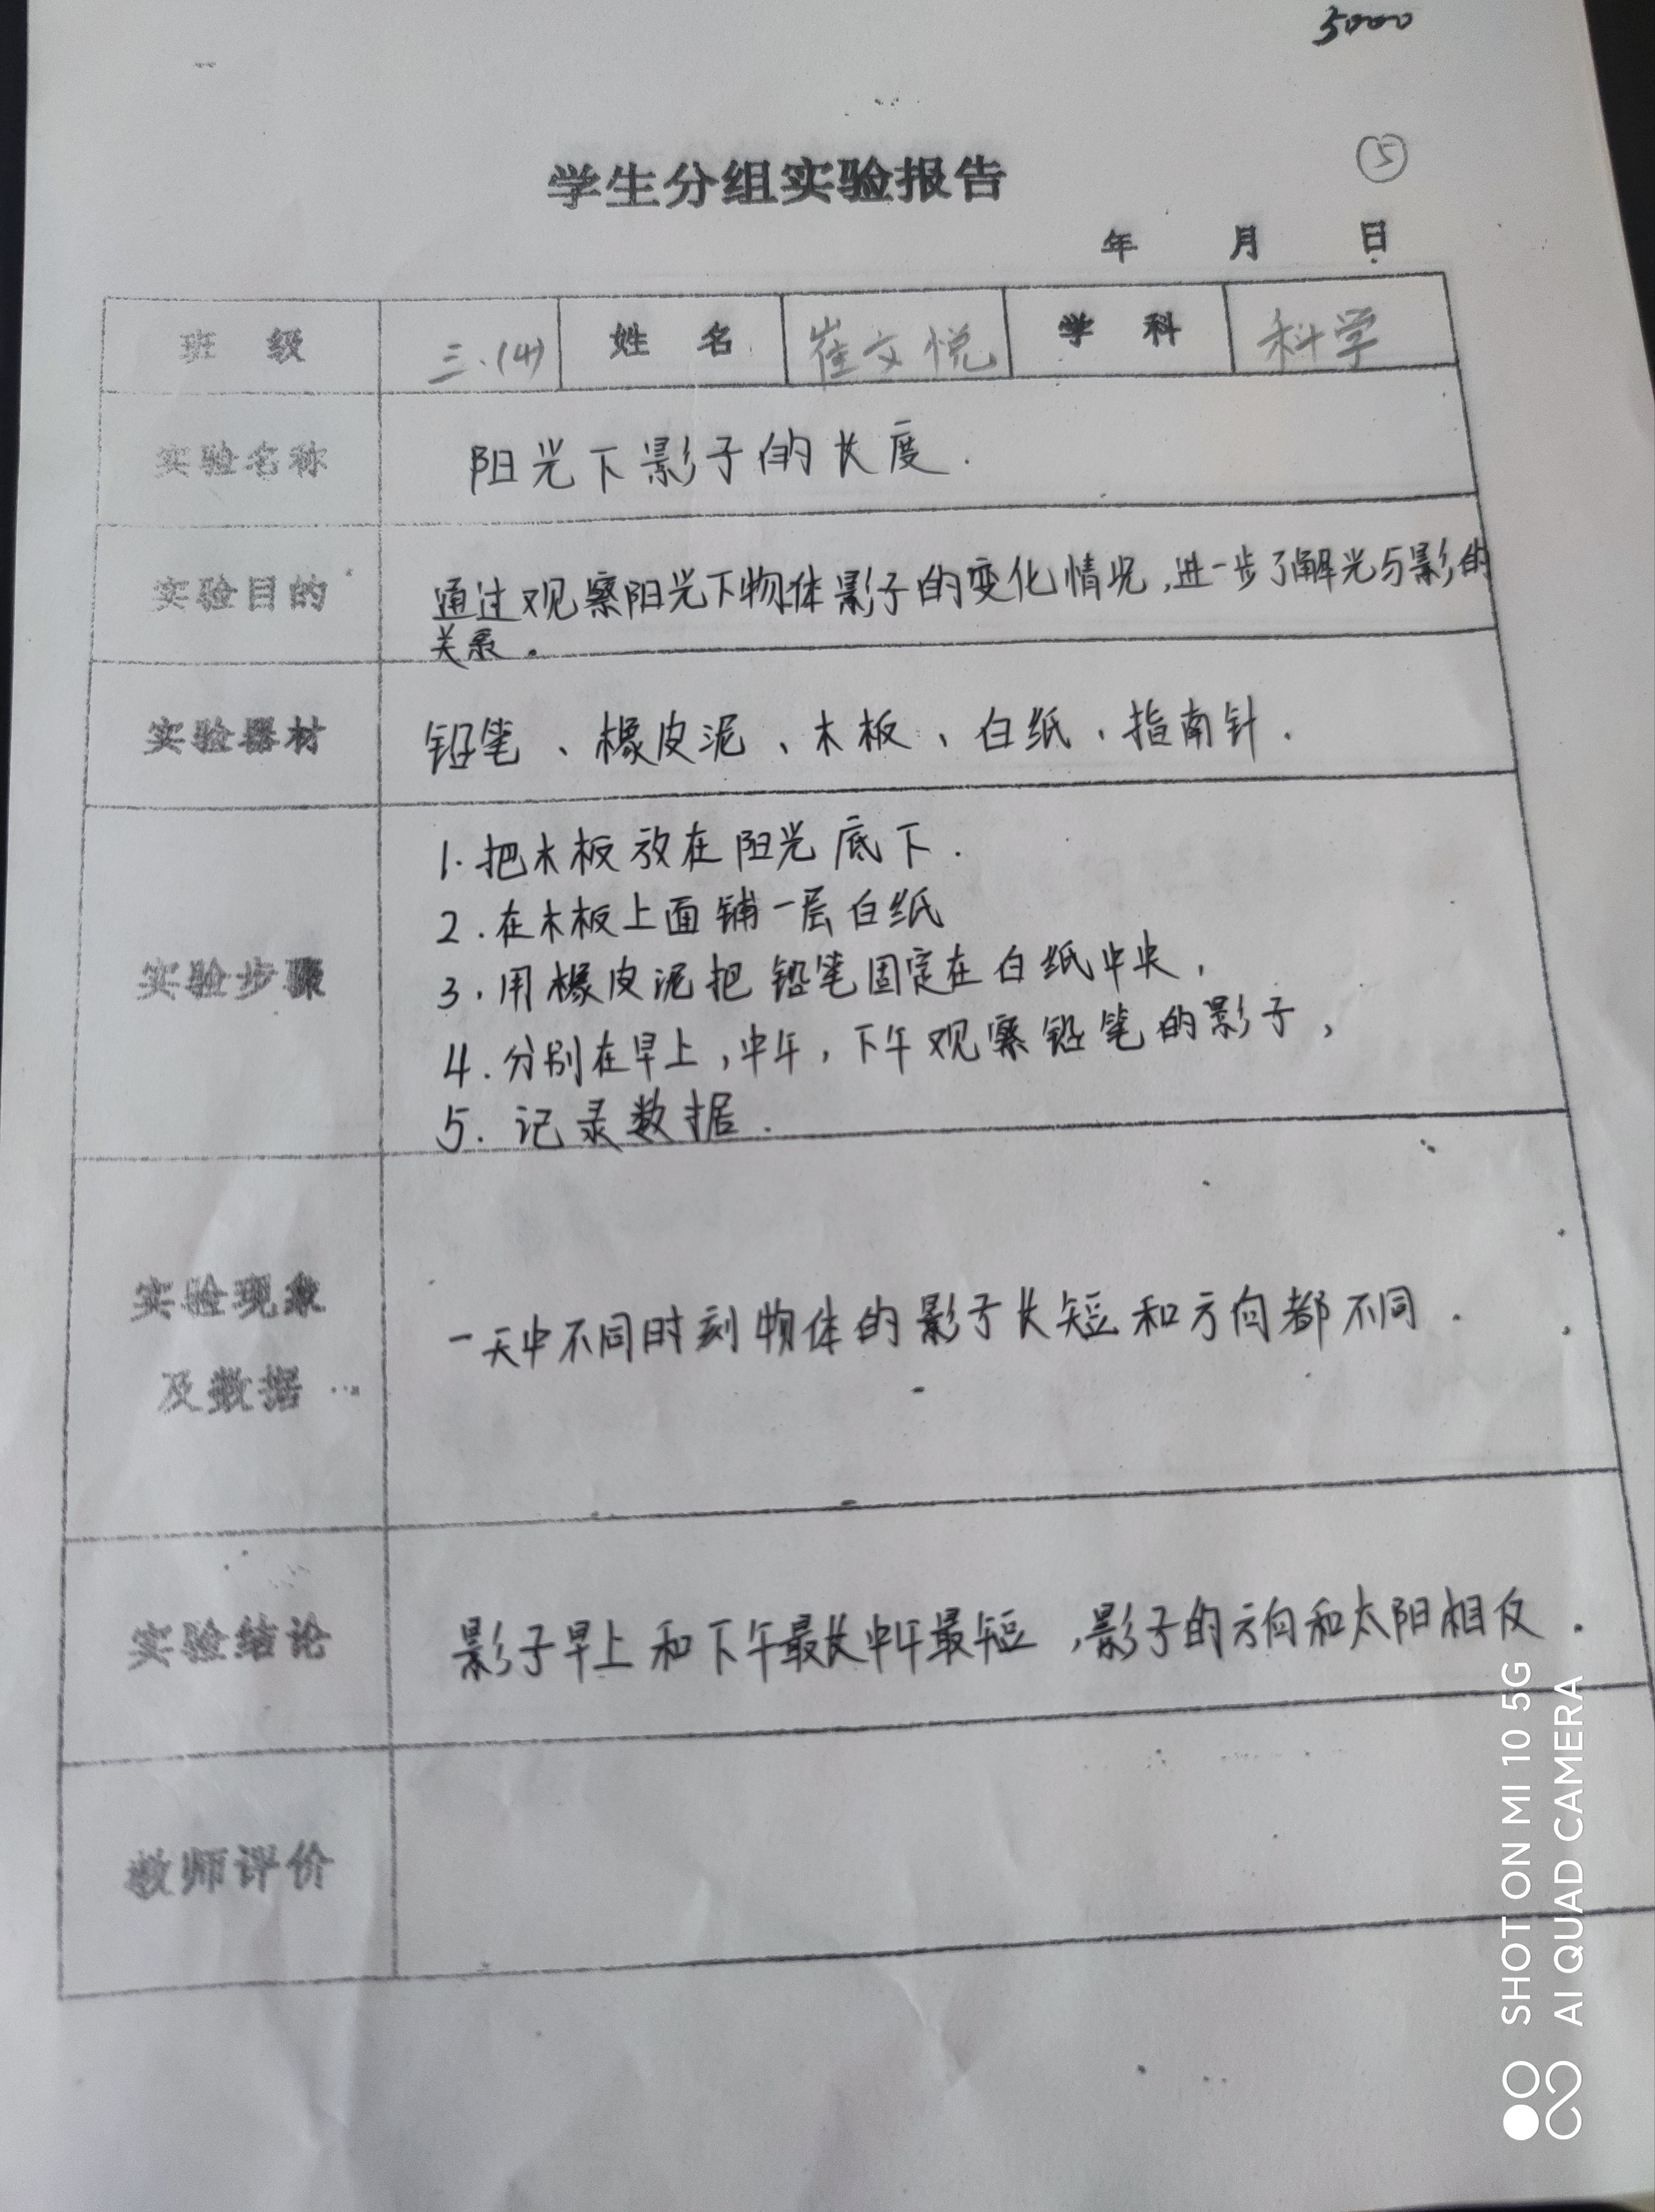 5000
学生分组实验报告
⑤
年 月 日
班 级 三.(4) 姓 名 崔文悦 学 科 科学
实验名称 阳光下影子的长度.
实验目的 通过观察阳光下物体影子的变化情况,进一步了解光与影的
关系。
实验器材 铅笔、橡皮泥、木板、白纸、指南针.
实验步骤
1.把木板放在阳光底下.
2.在木板上面铺一层白纸
3.用橡皮泥把铅笔固定在白纸中央,
4.分别在早上,中午,下午观察铅笔的影子,
5.记录数据.
实验现象
及数据
一天中不同时刻物体的影子长短和方向都不同.
实验结论 影子早上和下午最长中午最短,影子的方向和太阳相反.
教师评价
SHOT ON MI 10 5G
AI QUAD CAMERA